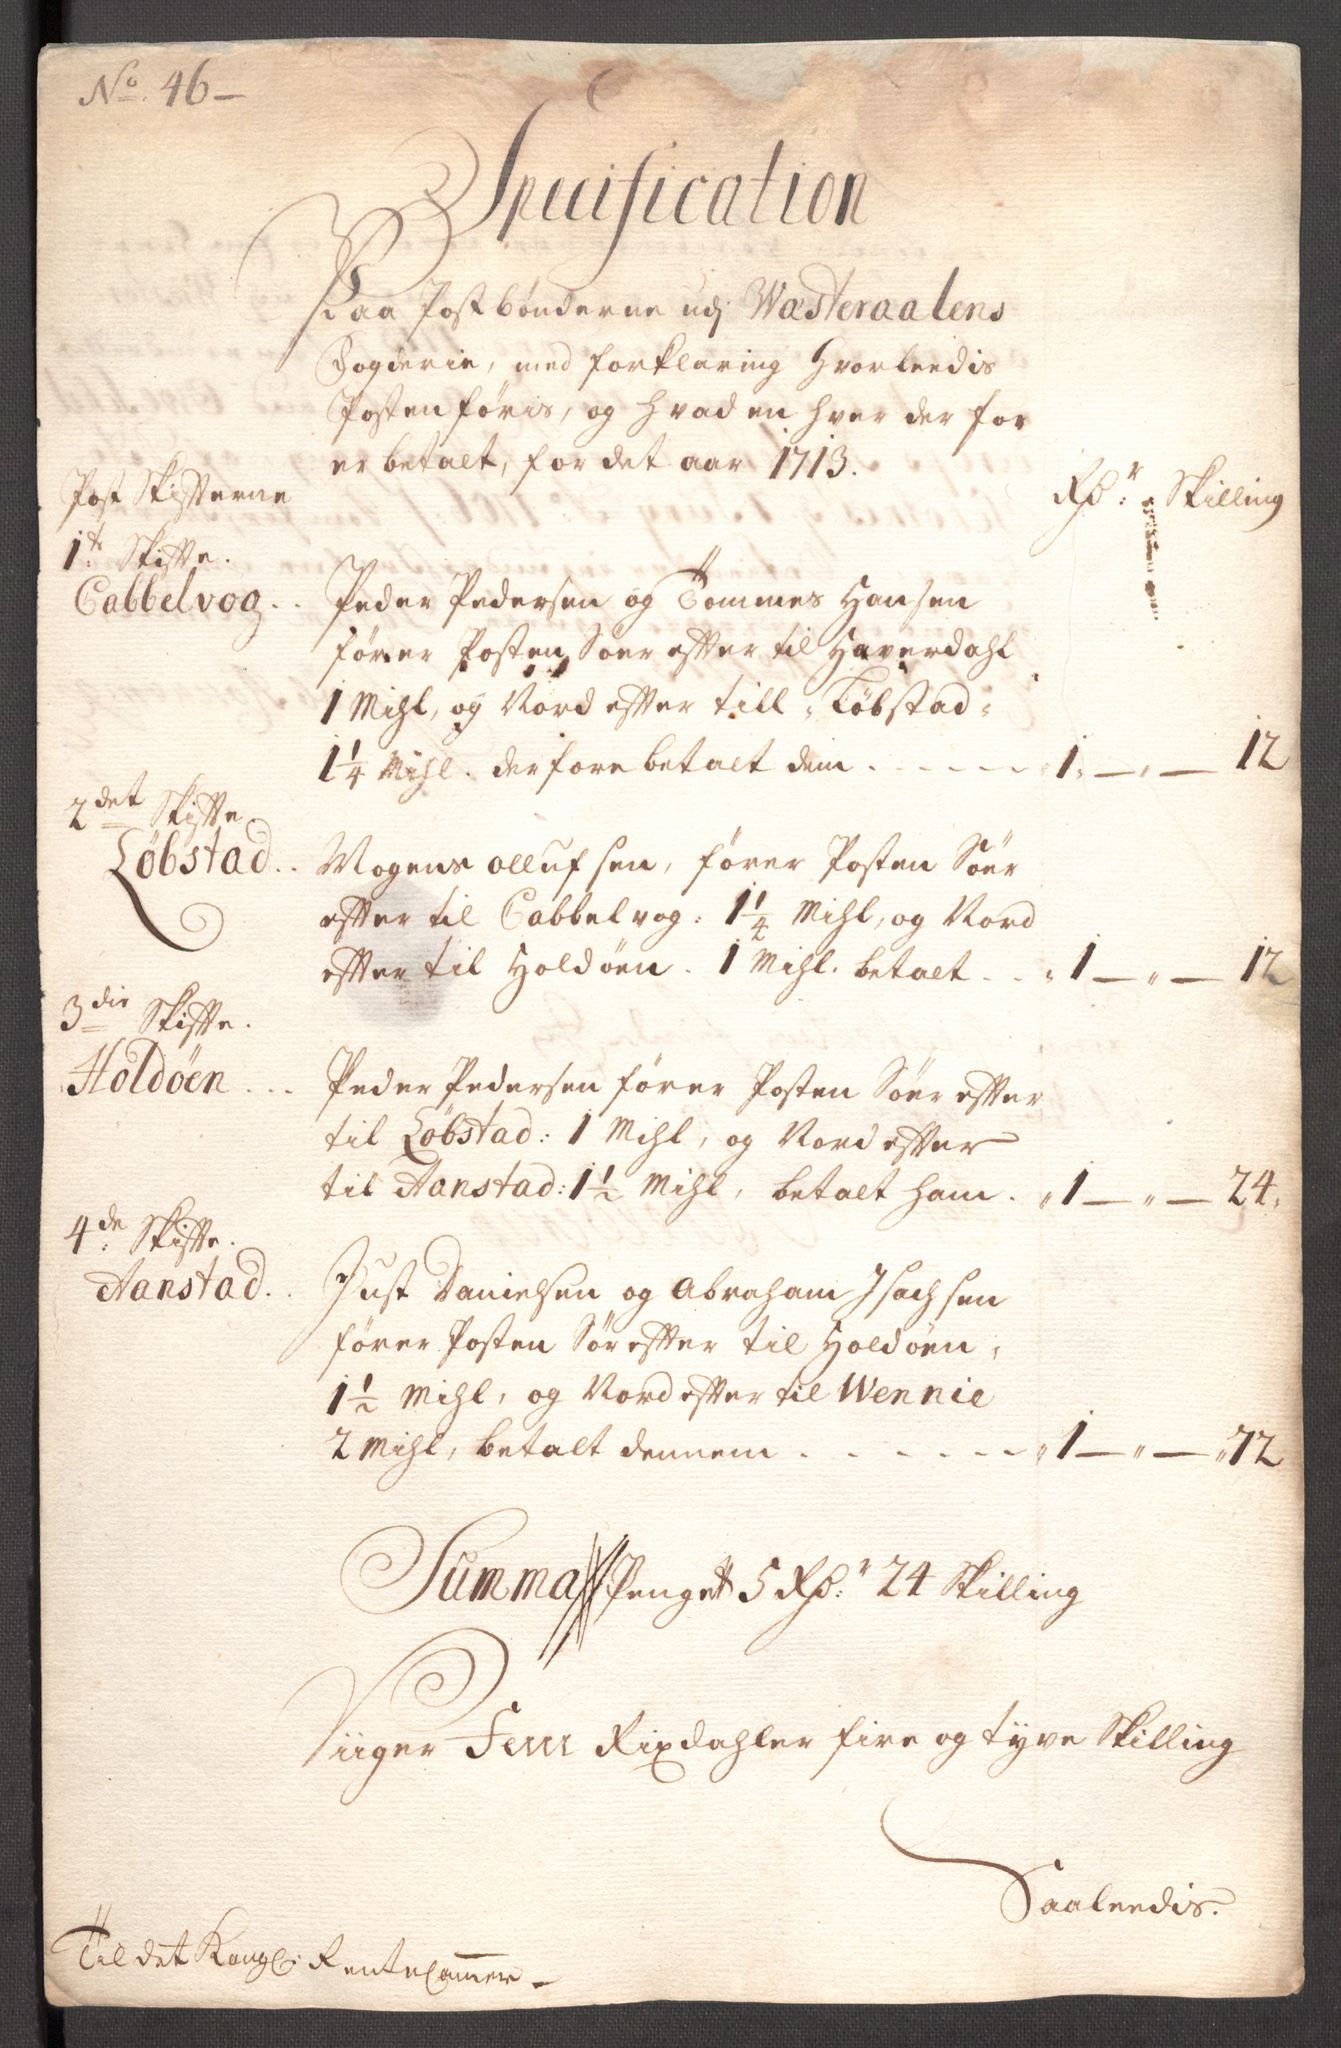 No. 46 -
Specification
Paa Postbønderne udj Wæsteraalens
Fogderie, med forklaring hvorleedis
Posten føris, og hvad en hver der for
er betalt, for det aar 1713.
Post Skifterne
Rd:r Skilling
1te Skifte.
Cabbelvog..
Peder Pedersen og Tommes Hansen
fører Posten Søer effter til Haverdahl
1 Mihl, og Nord effter till Løbstad
1 1/4 Mihl. derfore betalt dem . - - - - 1 - " - 12
2det Skifte
Løbstad..
Mogens Ollufsen, fører Posten Søer
effter til Cabbelvog: 1 1/4 Mihl, og Nord
effter til Holdøen. 1 Mihl. betalt . . " 1 - " - 12
3die Skifte.
Holdøen ...
Peder Pedersen fører Posten Søer effter
til Løbstad: 1 Mihl, og Nord effter
til Aanstad: 1 1/2 Mihl, betalt ham . " 1 - " - 24,
4de Skifte.
Aanstad..
Just Danielsen og Abraham Isachsen
fører Posten Sør effter til Holdøen,
1 1/2 Mihl, og Nord effter til Wennie
2 Mihl, betalt dennem . - - - - - " 1 - " - " 72
Summa Penge 5 Rd:r 24 Skilling
Siiger Fem Rixdahler fire og tyve Skilling
Saaleedis.
Til det Kongl: Rente Cammer -